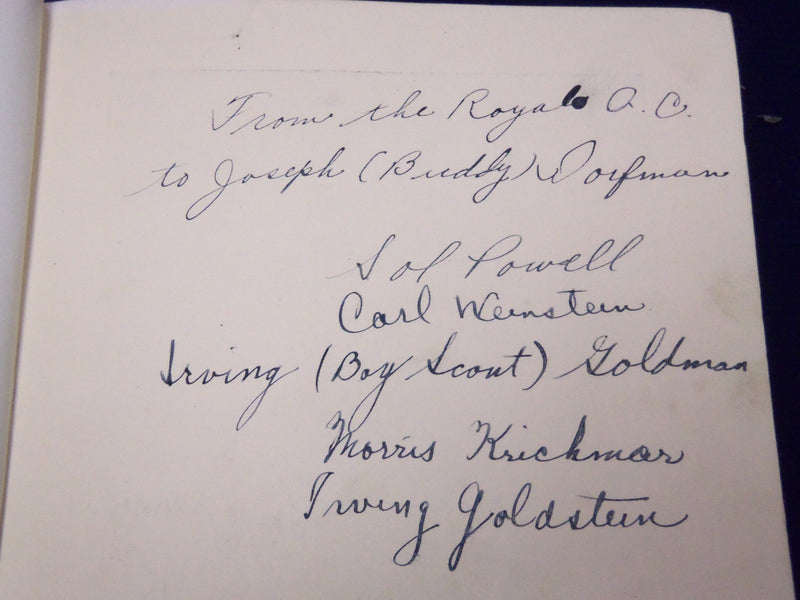 From the Royals A. C.
to Joseph (Buddy) Dorfman
Sol Powell
Carl Weinstein
Irving (Boy Scout) Goldman
Morris Krichmar
Irving Goldstein